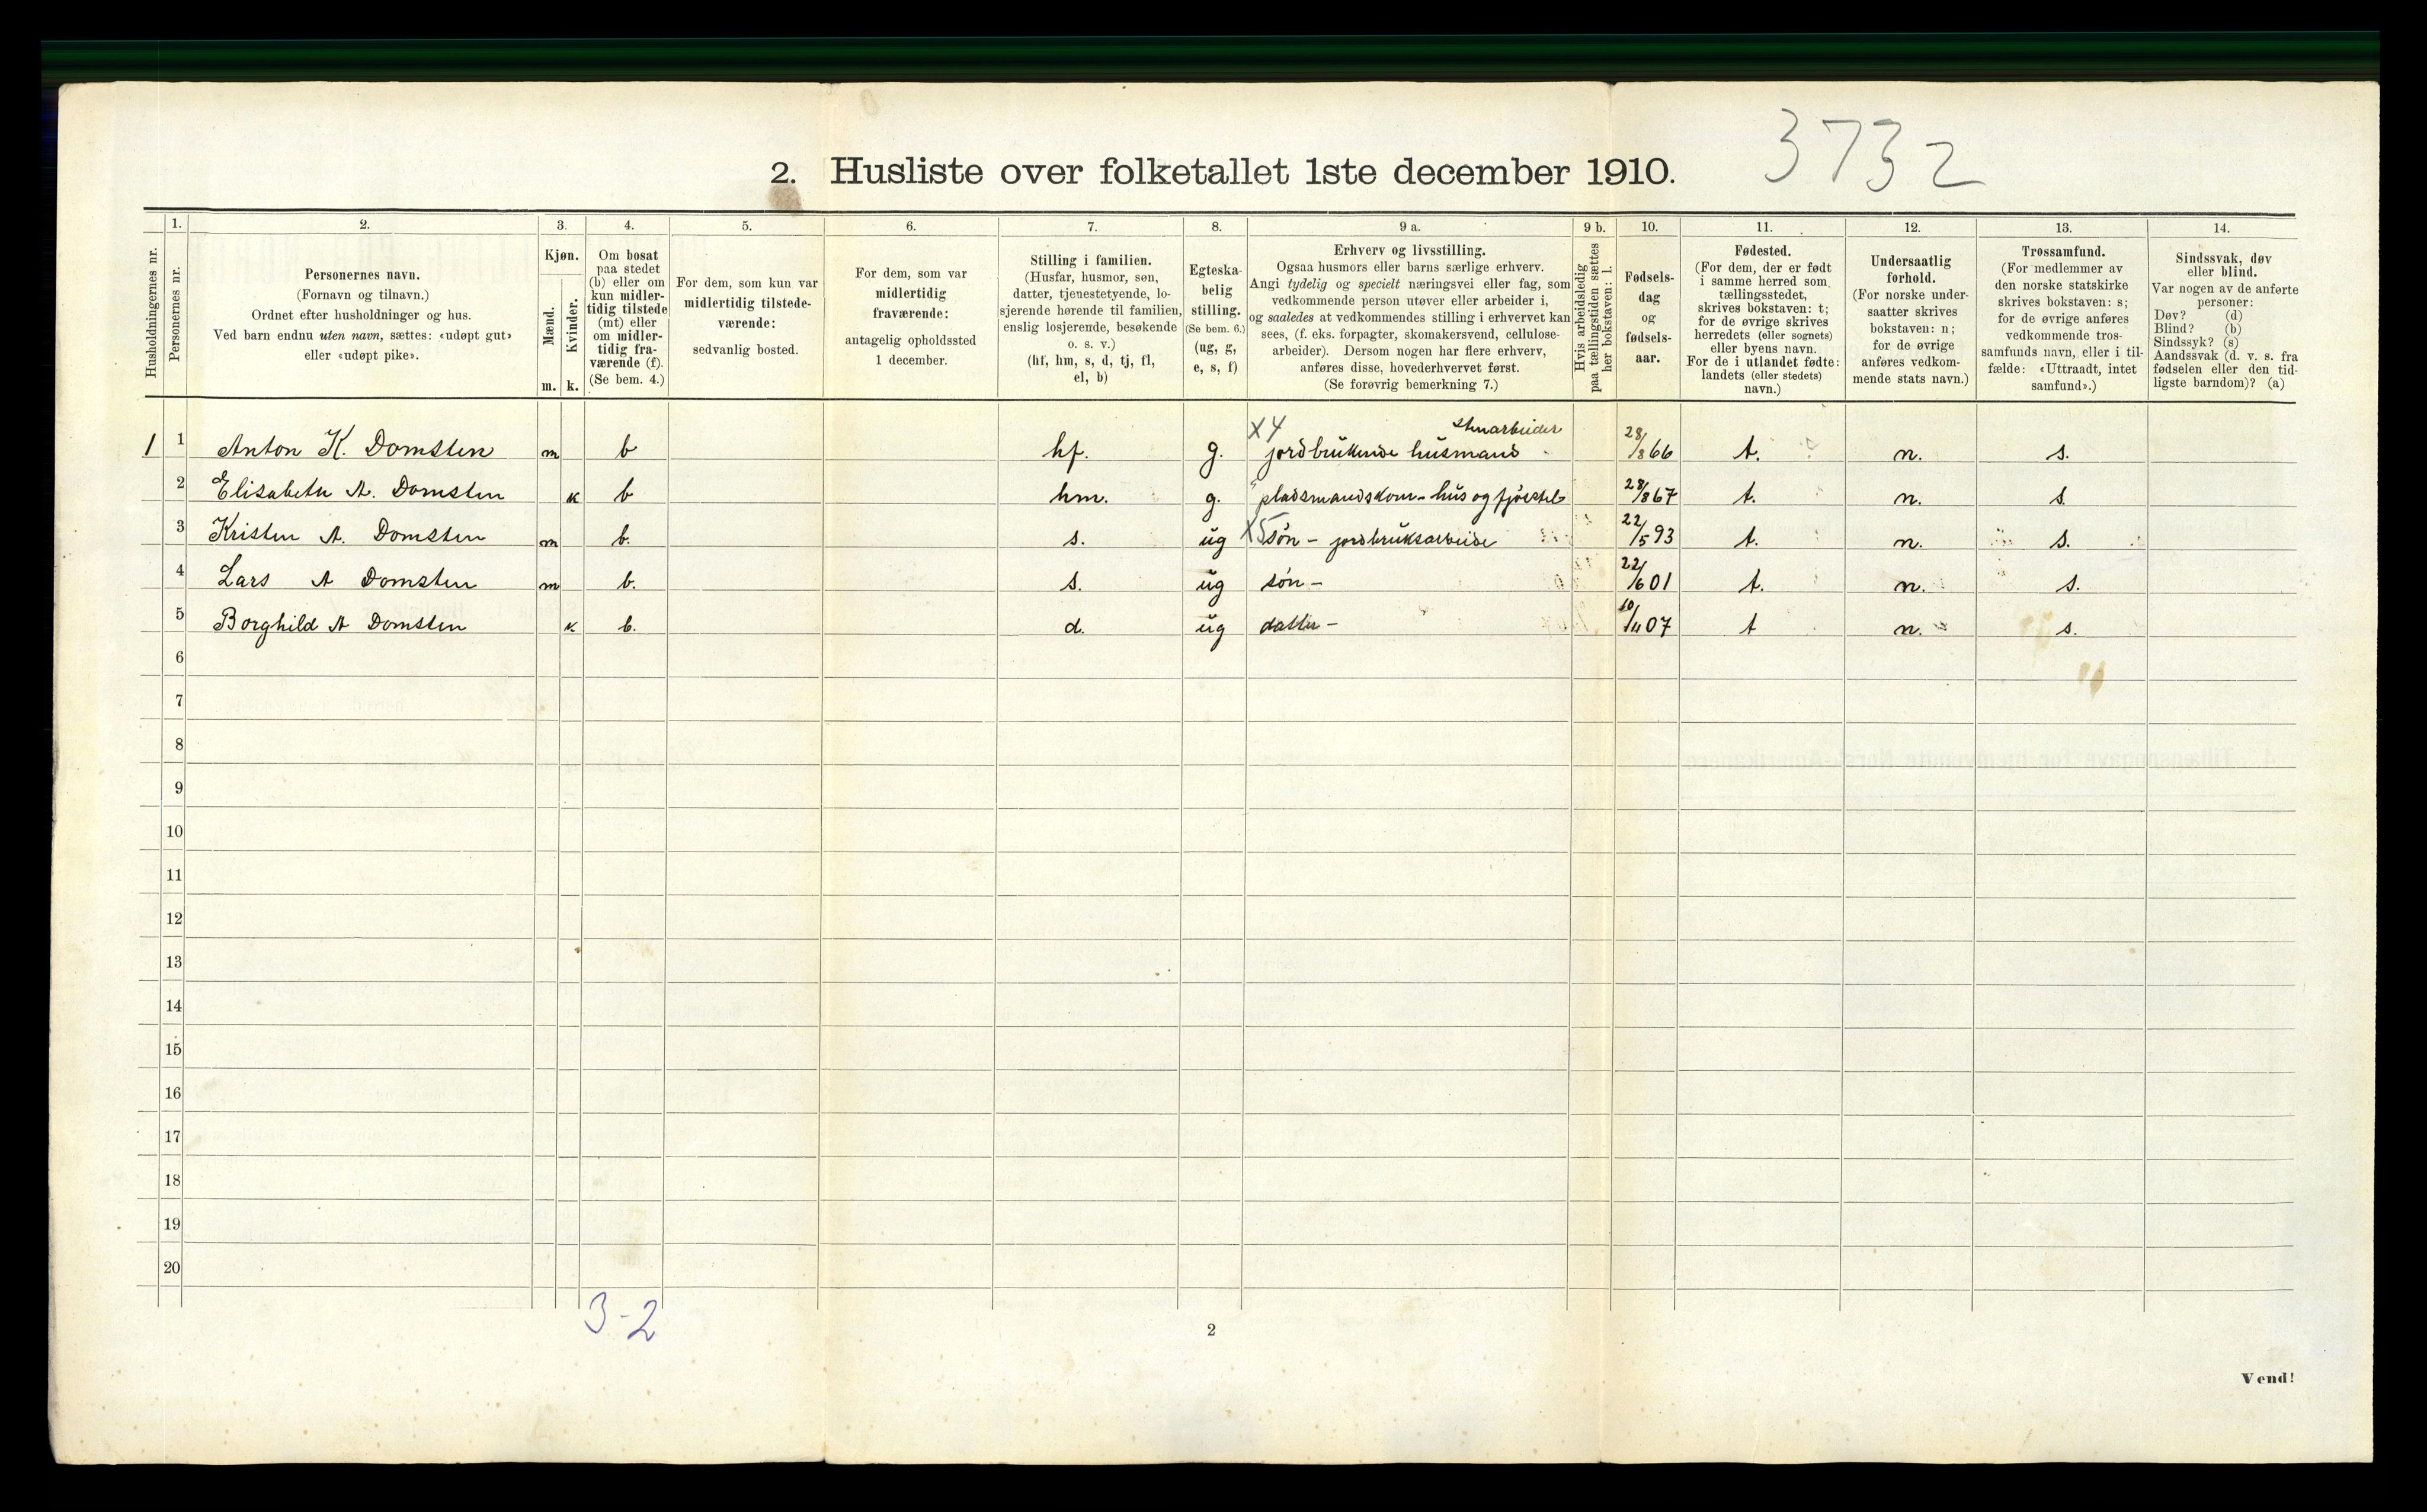 3732
2. Husliste over folketallet 1ste december 1910.
Husholdningernes nr.
1.
Personernes nr.
2.
Personernes navn.
(Fornavn og tilnavn.)
Ordnet efter husholdninger og hus.
Ved barn endnu uten navn, sættes: «udøpt gut»
eller «udøpt pike».
3.
Kjøn.
Mænd.
m.
Kvinder.
k.
4.
Om bosat
paa stedet
(b) eller om
kun midler-
tidig tilstede
(mt) eller
om midler-
tidig fra-
værende (f).
(Se bem. 4.)
5.
For dem, som kun var
midlertidig tilstede-
værende:
sedvanlig bosted.
6.
For dem, som var
midlertidig
fraværende:
antagelig opholdssted
1 december.
7.
Stilling i familien.
(Husfar, husmor, søn,
datter, tjenestetyende, lo-
sjerende hørende til familien,
enslig losjerende, besøkende
o. s. v.)
(hf, hm, s, d, tj, fl,
el, b)
8.
Egteska-
belig
stilling.
(Se bem. 6.)
(ug, g,
e, s, f)
9 a.
Erhverv og livsstilling.
Ogsaa husmors eller barns særlige erhverv.
Angi tydelig og specielt næringsvei eller fag, som
vedkommende person utøver eller arbeider i,
og saaledes at vedkommendes stilling i erhvervet kan
sees, (f. eks. forpagter, skomakersvend, cellulose-
arbeider). Dersom nogen har flere erhverv,
anføres disse, hovederhvervet først.
(Se forøvrig bemerkning 7.)
9 b.
Hvis arbeidsledig
paa tællingstiden sættes
her bokstaven: l.
10.
Fødsels-
dag
og
fødsels-
aar.
11.
Fødested.
(For dem, der er født
i samme herred som
tællingsstedet,
skrives bokstaven: t;
for de øvrige skrives
herredets (eller sognets)
eller byens navn.
For de i utlandet fødte:
landets (eller stedets)
navn.)
12.
Undersaatlig
forhold.
(For norske under-
saatter skrives
bokstaven: n;
for de øvrige
anføres vedkom-
mende stats navn.)
13.
Trossamfund.
(For medlemmer av
den norske statskirke
skrives bokstaven: s;
for de øvrige anføres
vedkommende tros-
samfunds navn, eller i til-
fælde: «Uttraadt, intet
samfund».)
14.
Sindssvak, døv
eller blind.
Var nogen av de anførte
personer:
Døv? (d)
Blind? (b)
Sindssyk? (s)
Aandssvak (d. v. s. fra
fødselen eller den tid-
ligste barndom)? (a)
X4 stenarbeider
1 1 Anton K. Domsten m b hf. g. jordbrukende husmand 28/8 66 t. n. s.
2 Elisabeth A. Domsten k b hm. g. pladsmandskom - hus og fjøsstel 28/8 67 t. n. s.
3 Kristen A. Domsten m b. s. ug X5 søn - jordbruksarbeide 22/5 93 t. n. s.
4 Lars A Domsten m b. s. ug søn - 22/6 01 t. n. s.
5 Borghild A Domsten k b. d. ug datter - 10/11 07 t n. s.
6
7
8
9
10
11
12
13
14
15
16
17
18
19
20
3-2
2
Vend!